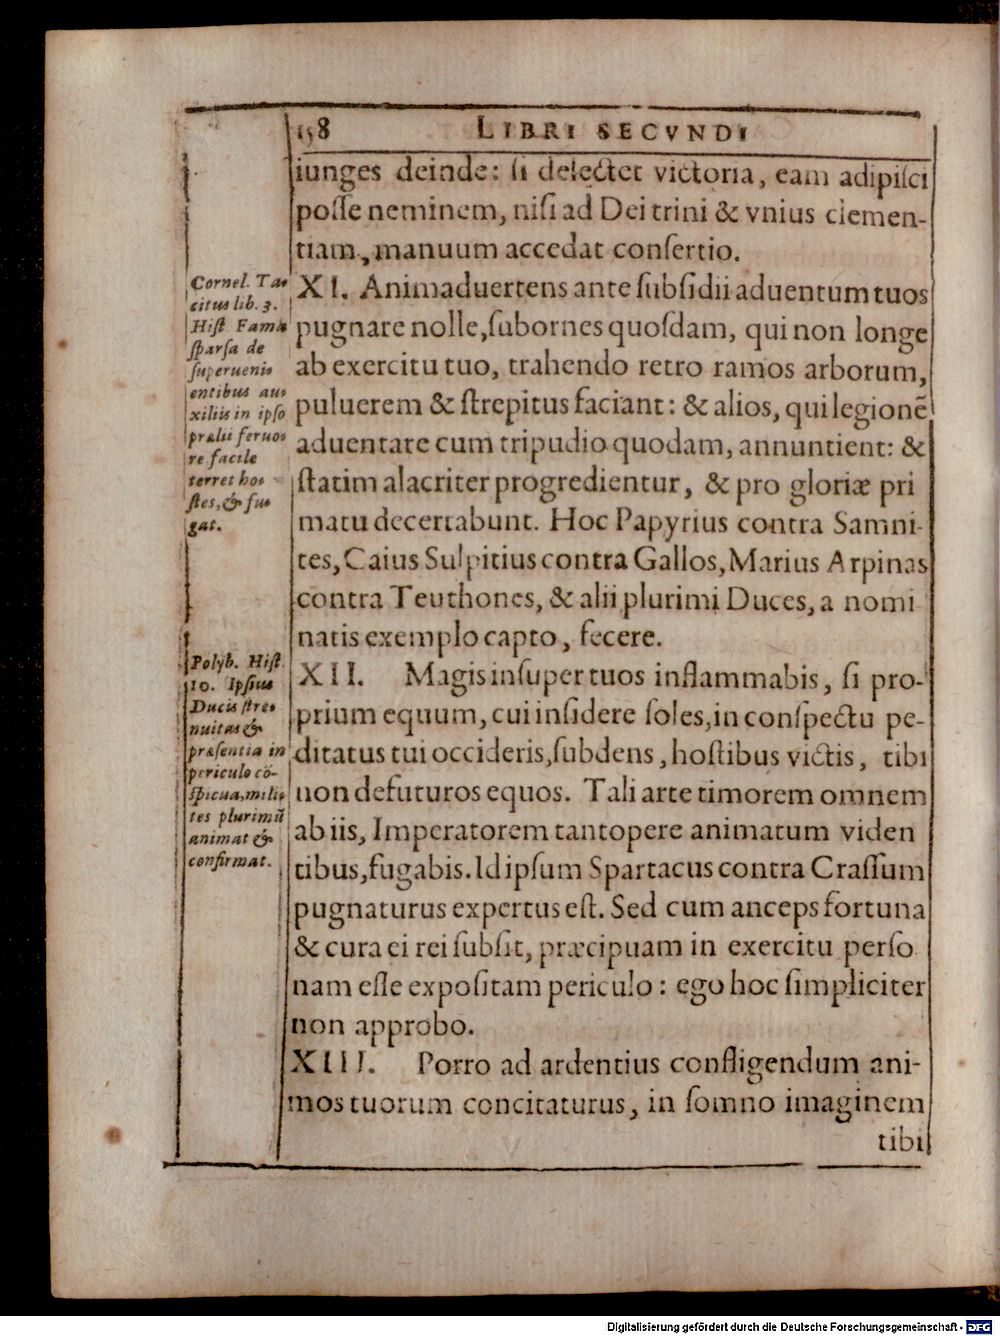 158 LIBRI SECVNDI
iunges deinde: si delectet victoria, eam adipisci
posse neminem, nisi ad Dei trini & vnius clemen-
tiam, manuum accedat consertio.
Cornel. Ta-
citus lib. 3.
Hist Fama
sparsa de
superueni-
entibus au-
xiliis in ipso
prælii feruo-
re facile
terret ho-
stes, & fu-
gat.
XI. Animaduertens ante subsidii aduentum tuos
pugnare nolle, subornes quosdam, qui non longe
ab exercitu tuo, trahendo retro ramos arborum,
puluerem & strepitus faciant: & alios, qui legionē
aduentare cum tripudio quodam, annuntient: &
statim alacriter progredientur, & pro gloriæ pri
matu decertabunt. Hoc Papyrius contra Samni-
tes, Caius Sulpitius contra Gallos, Marius Arpinas
contra Teuthones, & alii plurimi Duces, a nomi
natis exemplo capto, fecere.
Polyb. Hist.
10. Ipsius
Ducis stre-
nuitas &
præsentia in
periculo cō-
spicua, mili-
tes plurimū
animat &
confirmat.
XII. Magis insuper tuos inflammabis, si pro-
prium equum, cui insidere soles, in conspectu pe-
ditatus tui occideris, subdens, hostibus victis, tibi
non defuturos equos. Tali arte timorem omnem
ab iis, Imperatorem tantopere animatum viden
tibus, fugabis. Id ipsum Spartacus contra Crassum
pugnaturus expertus est. Sed cum anceps fortuna
& cura ei rei subsit, præcipuam in exercitu perso
nam esse expositam periculo: ego hoc simpliciter
non approbo.
XIII. Porro ad ardentius confligendum ani-
mos tuorum concitaturus, in somno imaginem
tibi
Digitalisierung gefördert durch die Deutsche Forschungsgemeinschaft - DFG